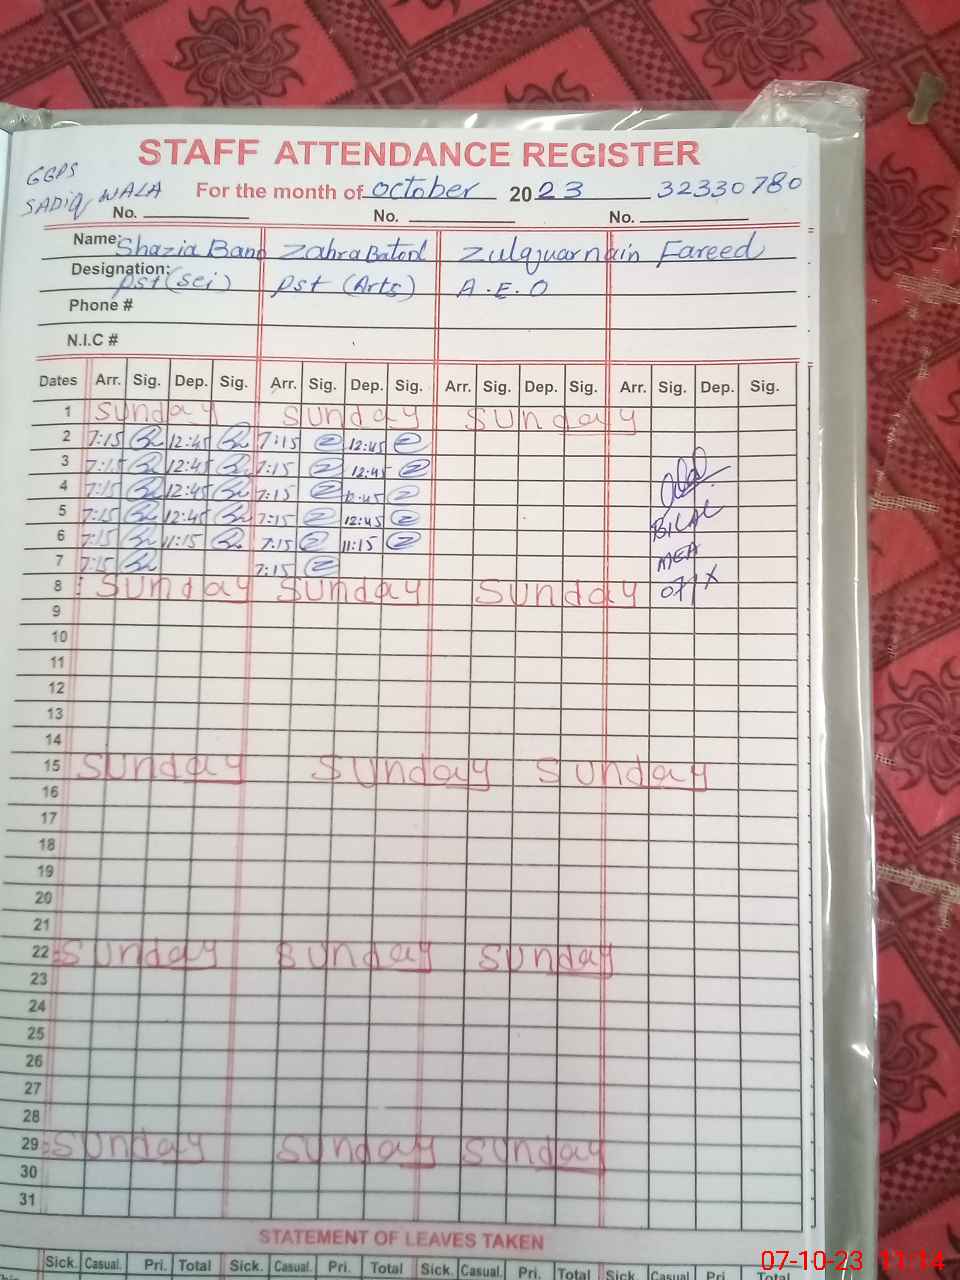 STAFF ATTENDANCE REGISTER
GGPS
SADIQ WALA
For the month of October 2023 32330780
No. No. No.
Name: Shazia Bano Zahra Batool Zulqurnain Fareed
Designation: Pst (Sci) Pst (Arts) A.E.O
Phone #
N.I.C #
Dates Arr. Sig. Dep. Sig. Arr. Sig. Dep. Sig. Arr. Sig. Dep. Sig. Arr. Sig. Dep. Sig.
1 Sunday Sunday Sunday
2 7:15 12:45 7:15 12:45
3 7:15 12:45 7:15 12:45
4 7:15 12:45 7:15 12:45
5 7:15 12:45 7:15 12:45 BILAL
6 7:15 11:15 7:15 11:15 MEA
7 7:15 7:15
8 Sunday Sunday Sunday
9
10
11
12
13
14
15 Sunday Sunday Sunday
16
17
18
19
20
21
22 Sunday Sunday Sunday
23
24
25
26
27
28
29 Sunday Sunday Sunday
30
31
STATEMENT OF LEAVES TAKEN
Sick. Casual. Pri. Total Sick. Casual. Pri. Total Sick. Casual. Pri. Total Sick. Casual. Pri. Total
07-10-23 11:14